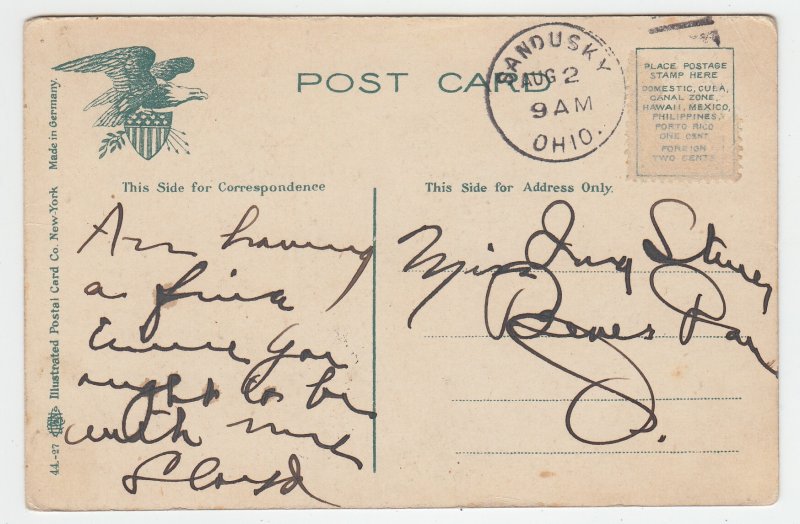 POST CARD
SANDUSKY
AUG 2
9 AM
OHIO.
PLACE POSTAGE
STAMP HERE
DOMESTIC, CUBA,
CANAL ZONE,
HAWAII, MEXICO,
PHILIPPINES,
PORTO RICO
ONE CENT
FOREIGN
TWO CENTS
This Side for Correspondence
This Side for Address Only.
Am having
a fine
time you
ought to be
with me
Floyd
Miss
44-27
Illustrated Postal Card Co. New-York
Made in Germany.